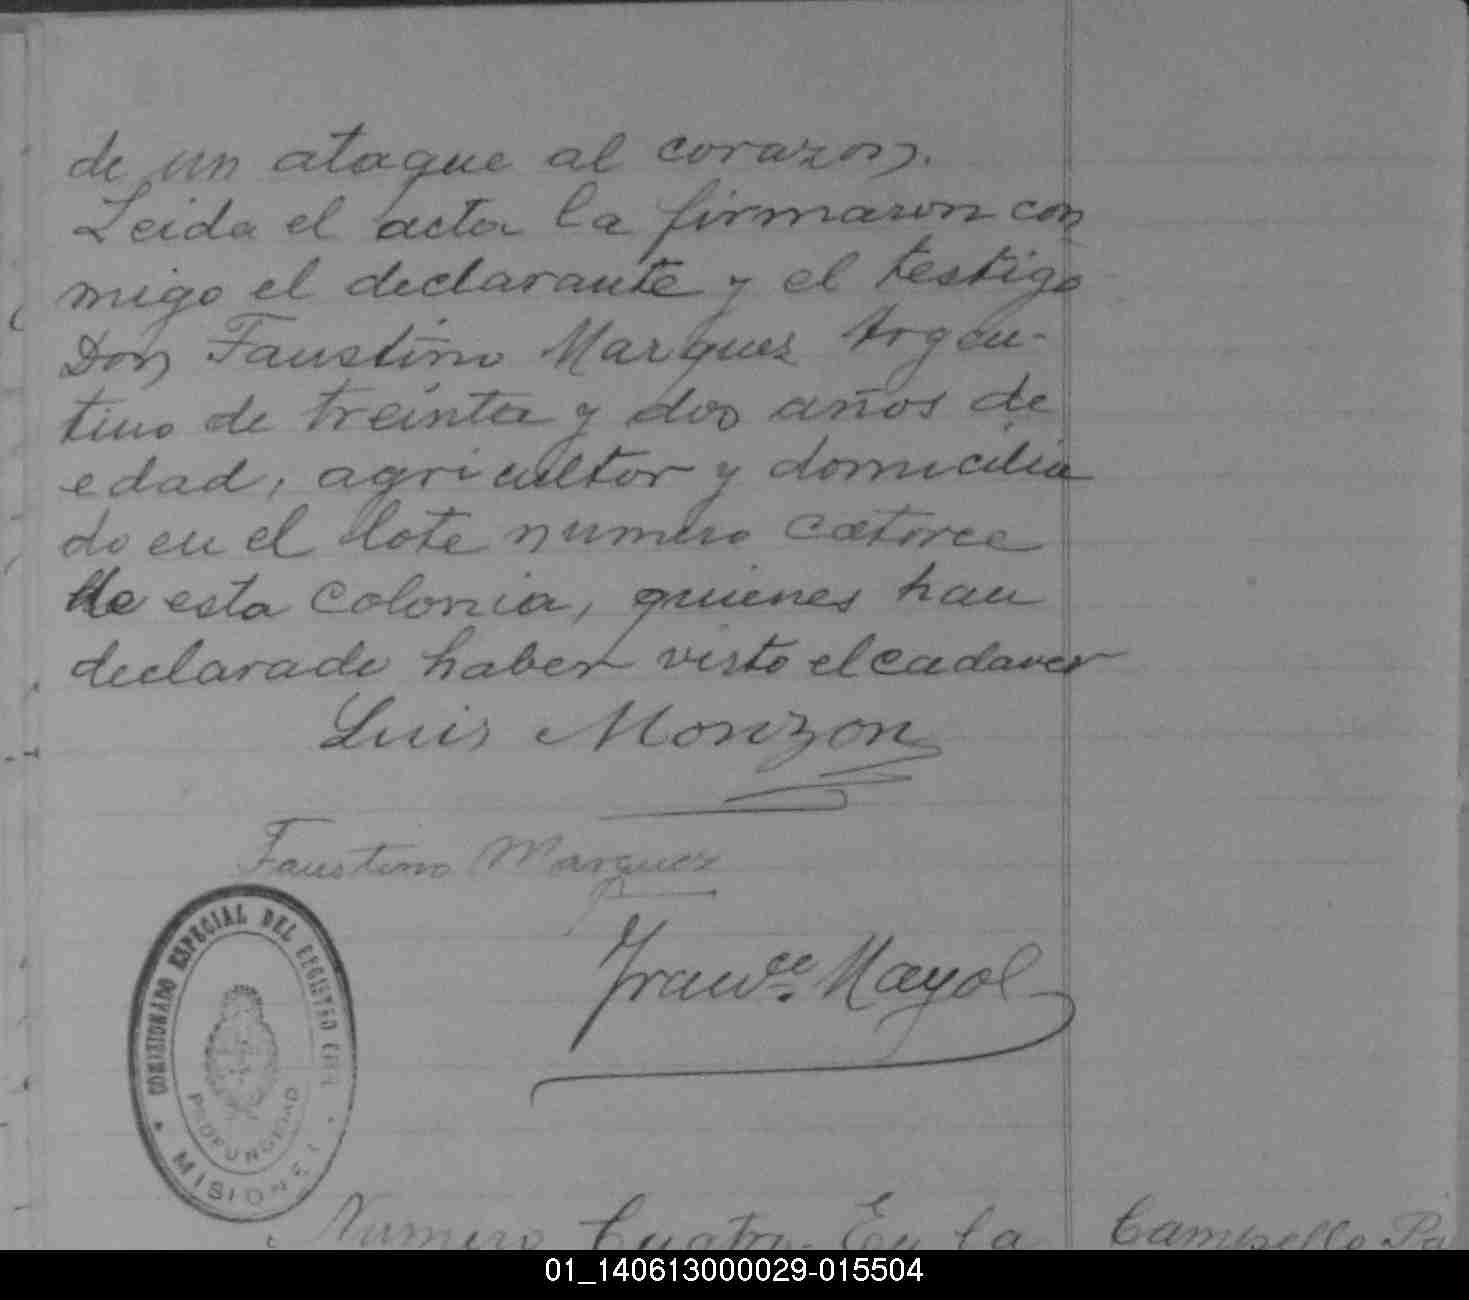 de un ataque al corazon.
Leida el acta la firmaron con
migo el declarante y el testigo
Don Faustino Marquez Argen-
tino de treinta y dos años de
edad, agricultor y domicilia
do en el lote numero catorce
de esta colonia, quienes han
declarado haber visto el cadaver
Luis Monzon
Faustino Marquez
Franco. Mayol
COMISIONADO ESPECIAL DEL REGISTRO CIVIL
PROFUNDIDAD
MISIONES
Numero Cuatro. En la
Campello Pa
01_140613000029-015504